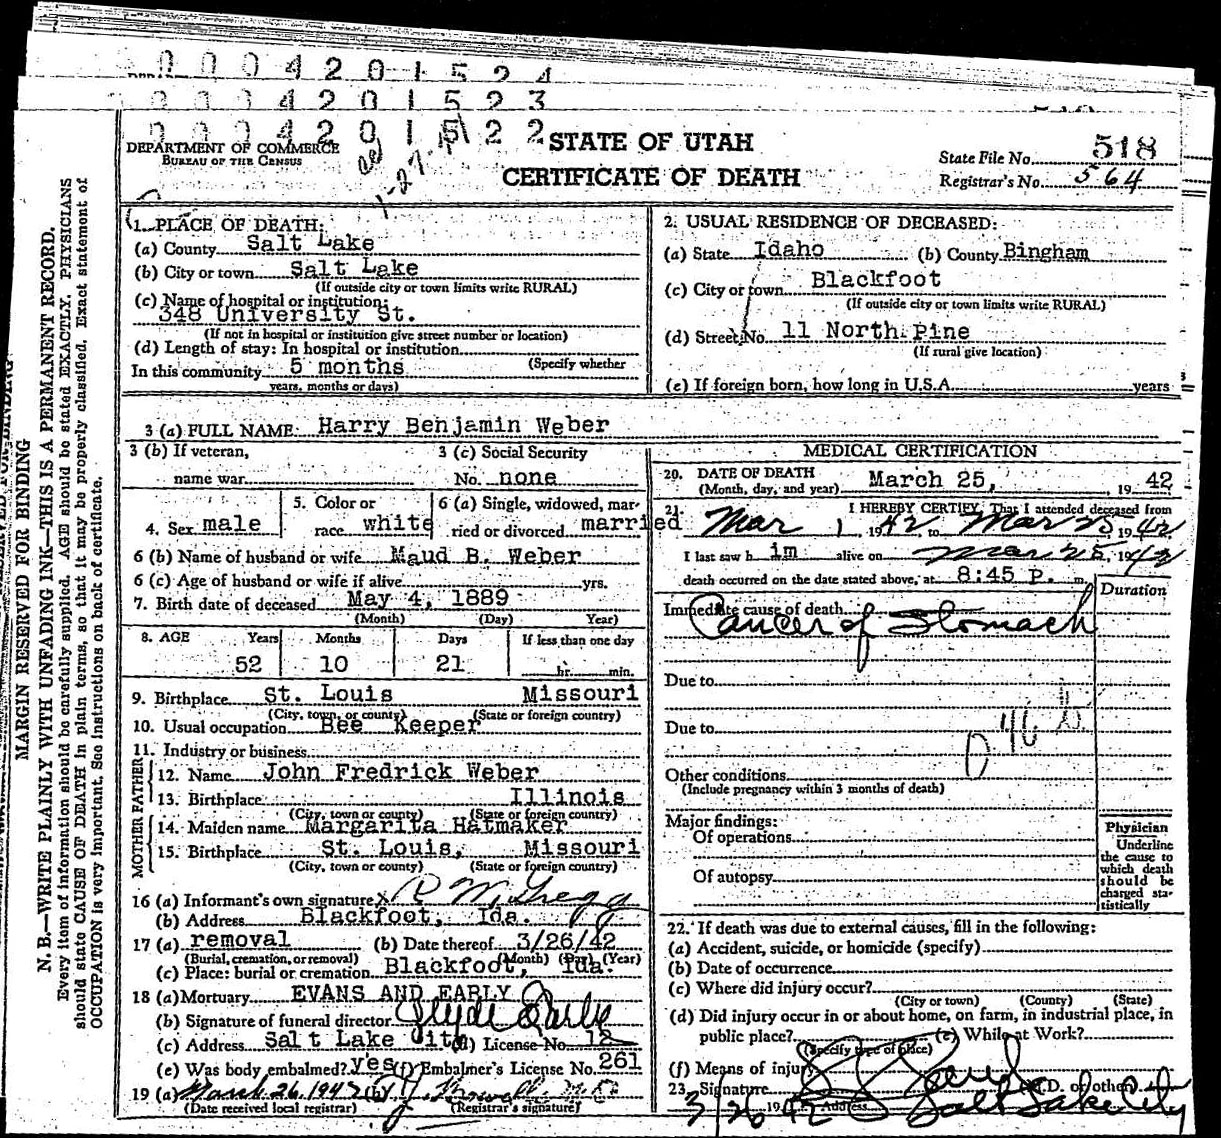 0 0 0 4 2 0 1 5 2 4
0 0 0 4 2 0 1 5 2 3
0 0 0 4 2 0 1 5 2 2
DEPARTMENT OF COMMERCE
BUREAU OF THE CENSUS
STATE OF UTAH
CERTIFICATE OF DEATH
State File No. 518
Registrar's No. 564
MARGIN RESERVED FOR BINDING
N. B.—WRITE PLAINLY WITH UNFADING INK—THIS IS A PERMANENT RECORD.
Every item of information should be carefully supplied. AGE should be stated EXACTLY. PHYSICIANS
should state CAUSE OF DEATH in plain terms, so that it may be properly classified. Exact statement of
OCCUPATION is very important. See instructions on back of certificate.
1. PLACE OF DEATH:
(a) County Salt Lake
(b) City or town Salt Lake
(If outside city or town limits write RURAL)
(c) Name of hospital or institution:
348 University St.
(If not in hospital or institution give street number or location)
(d) Length of stay: In hospital or institution
(Specify whether
In this community 5 months
years, months or days)
2. USUAL RESIDENCE OF DECEASED:
(a) State Idaho (b) County Bingham
(c) City or town Blackfoot
(If outside city or town limits write RURAL)
(d) Street No. 11 North Pine
(If rural give location)
(e) If foreign born, how long in U.S.A. years
3 (a) FULL NAME: Harry Benjamin Weber
3 (b) If veteran,
name war
3 (c) Social Security
No. none
4. Sex male
5. Color or
race white
6 (a) Single, widowed, mar-
ried or divorced married
6 (b) Name of husband or wife Maud B. Weber
6 (c) Age of husband or wife if alive yrs.
7. Birth date of deceased May 4, 1889
(Month) (Day) Year)
8. AGE Years Months Days If less than one day
52 10 21 hr. min.
9. Birthplace St. Louis Missouri
(City, town, or county) (State or foreign country)
10. Usual occupation Bee Keeper
11. Industry or business
FATHER
12. Name John Fredrick Weber
13. Birthplace Illinois
(City, town or county) (State or foreign country)
MOTHER
14. Maiden name Margarita Hatmaker
15. Birthplace St. Louis, Missouri
(City, town or county) (State or foreign country)
16 (a) Informant's own signature R W Gregg
(b) Address Blackfoot, Ida.
17 (a) removal (b) Date thereof 3/26/42
(Burial, cremation, or removal) (Month) (Day) (Year)
(c) Place: burial or cremation Blackfoot, Ida.
18 (a) Mortuary EVANS AND EARLY
(b) Signature of funeral director Clyde Early
(c) Address Salt Lake City (d) License No. 12
(e) Was body embalmed? Yes (f) Embalmer's License No. 261
19 (a) March 26, 1942 (b)
(Date received local registrar) (Registrar's signature)
MEDICAL CERTIFICATION
20. DATE OF DEATH March 25, 1942
(Month, day, and year)
21. I HEREBY CERTIFY, That I attended deceased from
Mar 1, 1942, to Mar 25, 1942
I last saw him alive on Mar 25, 1942
death occurred on the date stated above, at 8:45 P. m.
Duration
Immediate cause of death
Cancer of Stomach
Due to
Due to
46 b
Other conditions
(Include pregnancy within 3 months of death)
Major findings:
Of operations
Of autopsy
Physician
Underline
the cause to
which death
should be
charged sta-
tistically
22. If death was due to external causes, fill in the following:
(a) Accident, suicide, or homicide (specify)
(b) Date of occurrence
(c) Where did injury occur?
(City or town) (County) (State)
(d) Did injury occur in or about home, on farm, in industrial place, in
public place? (e) While at Work?
(Specify type of place)
(f) Means of injury
23. Signature M.D. or other
3/26 1942 Address Salt Lake City